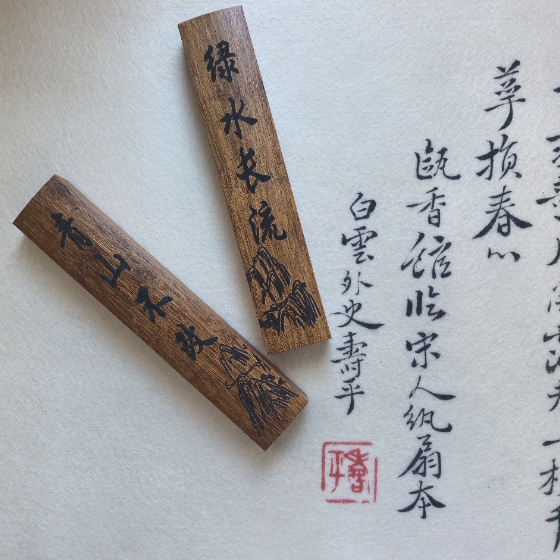 绿水长流
青山不改
草损春心
瓯香馆临宋人纨扇本
白雲外史壽平
壽平